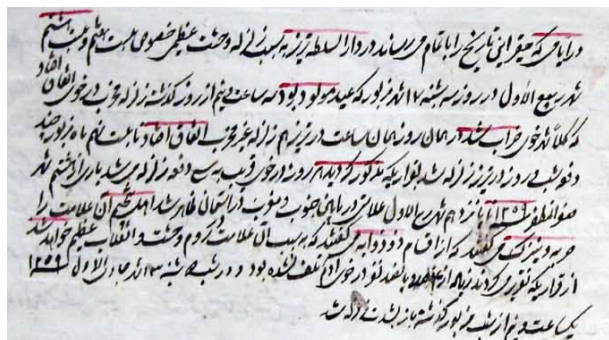 در ایامی که حقیر این تاریخ را باتمام می رساند در دار السلطنه تبریز به سبب زلزله وحشت عظیمی خصوصی بیست هفتم و بیست هشتم
شهر ربیع الاول در روز سه شنبه ۱۷ شهر مزبور که عید مولود بود سه ساعت و نیم از روز گذشته زلزله مخرب در خوی اتفاق افتاد
که کلا شهر خوی خراب شد در همان روز همان ساعت در تبریز هم زلزله غیر مخرب اتفاق افتاد تا بیست نهم ماه مزبور چند
دفعه شب و روز در تبریز زلزله شد بقراریکه مذکور گردید هر روزه در خوی قریب به سی دفعه زلزله می شد
صفر المظفر ۱۲۵۹ الی یازدهم شهر ربیع الاول علامتی در مابین جنوب و مغرب در آسمان ظاهر شد اهل تنجیم آن علامت را
حربه و نیزک می گفتند که از اقسام ذو ذوابه گفتند که به سبب آن علامت در مردم وحشت و انقلاب عظیم خواهد شد
از قراریکه تقریر می کردند زیاده از هزار و پانصد نفر در خوی آدم تلف شده بود و در شب شنبه جمادی الاول ۱۲۵۹
یکساعت و نیم از شب مزبور گذشته باز بشدت زلزله شد